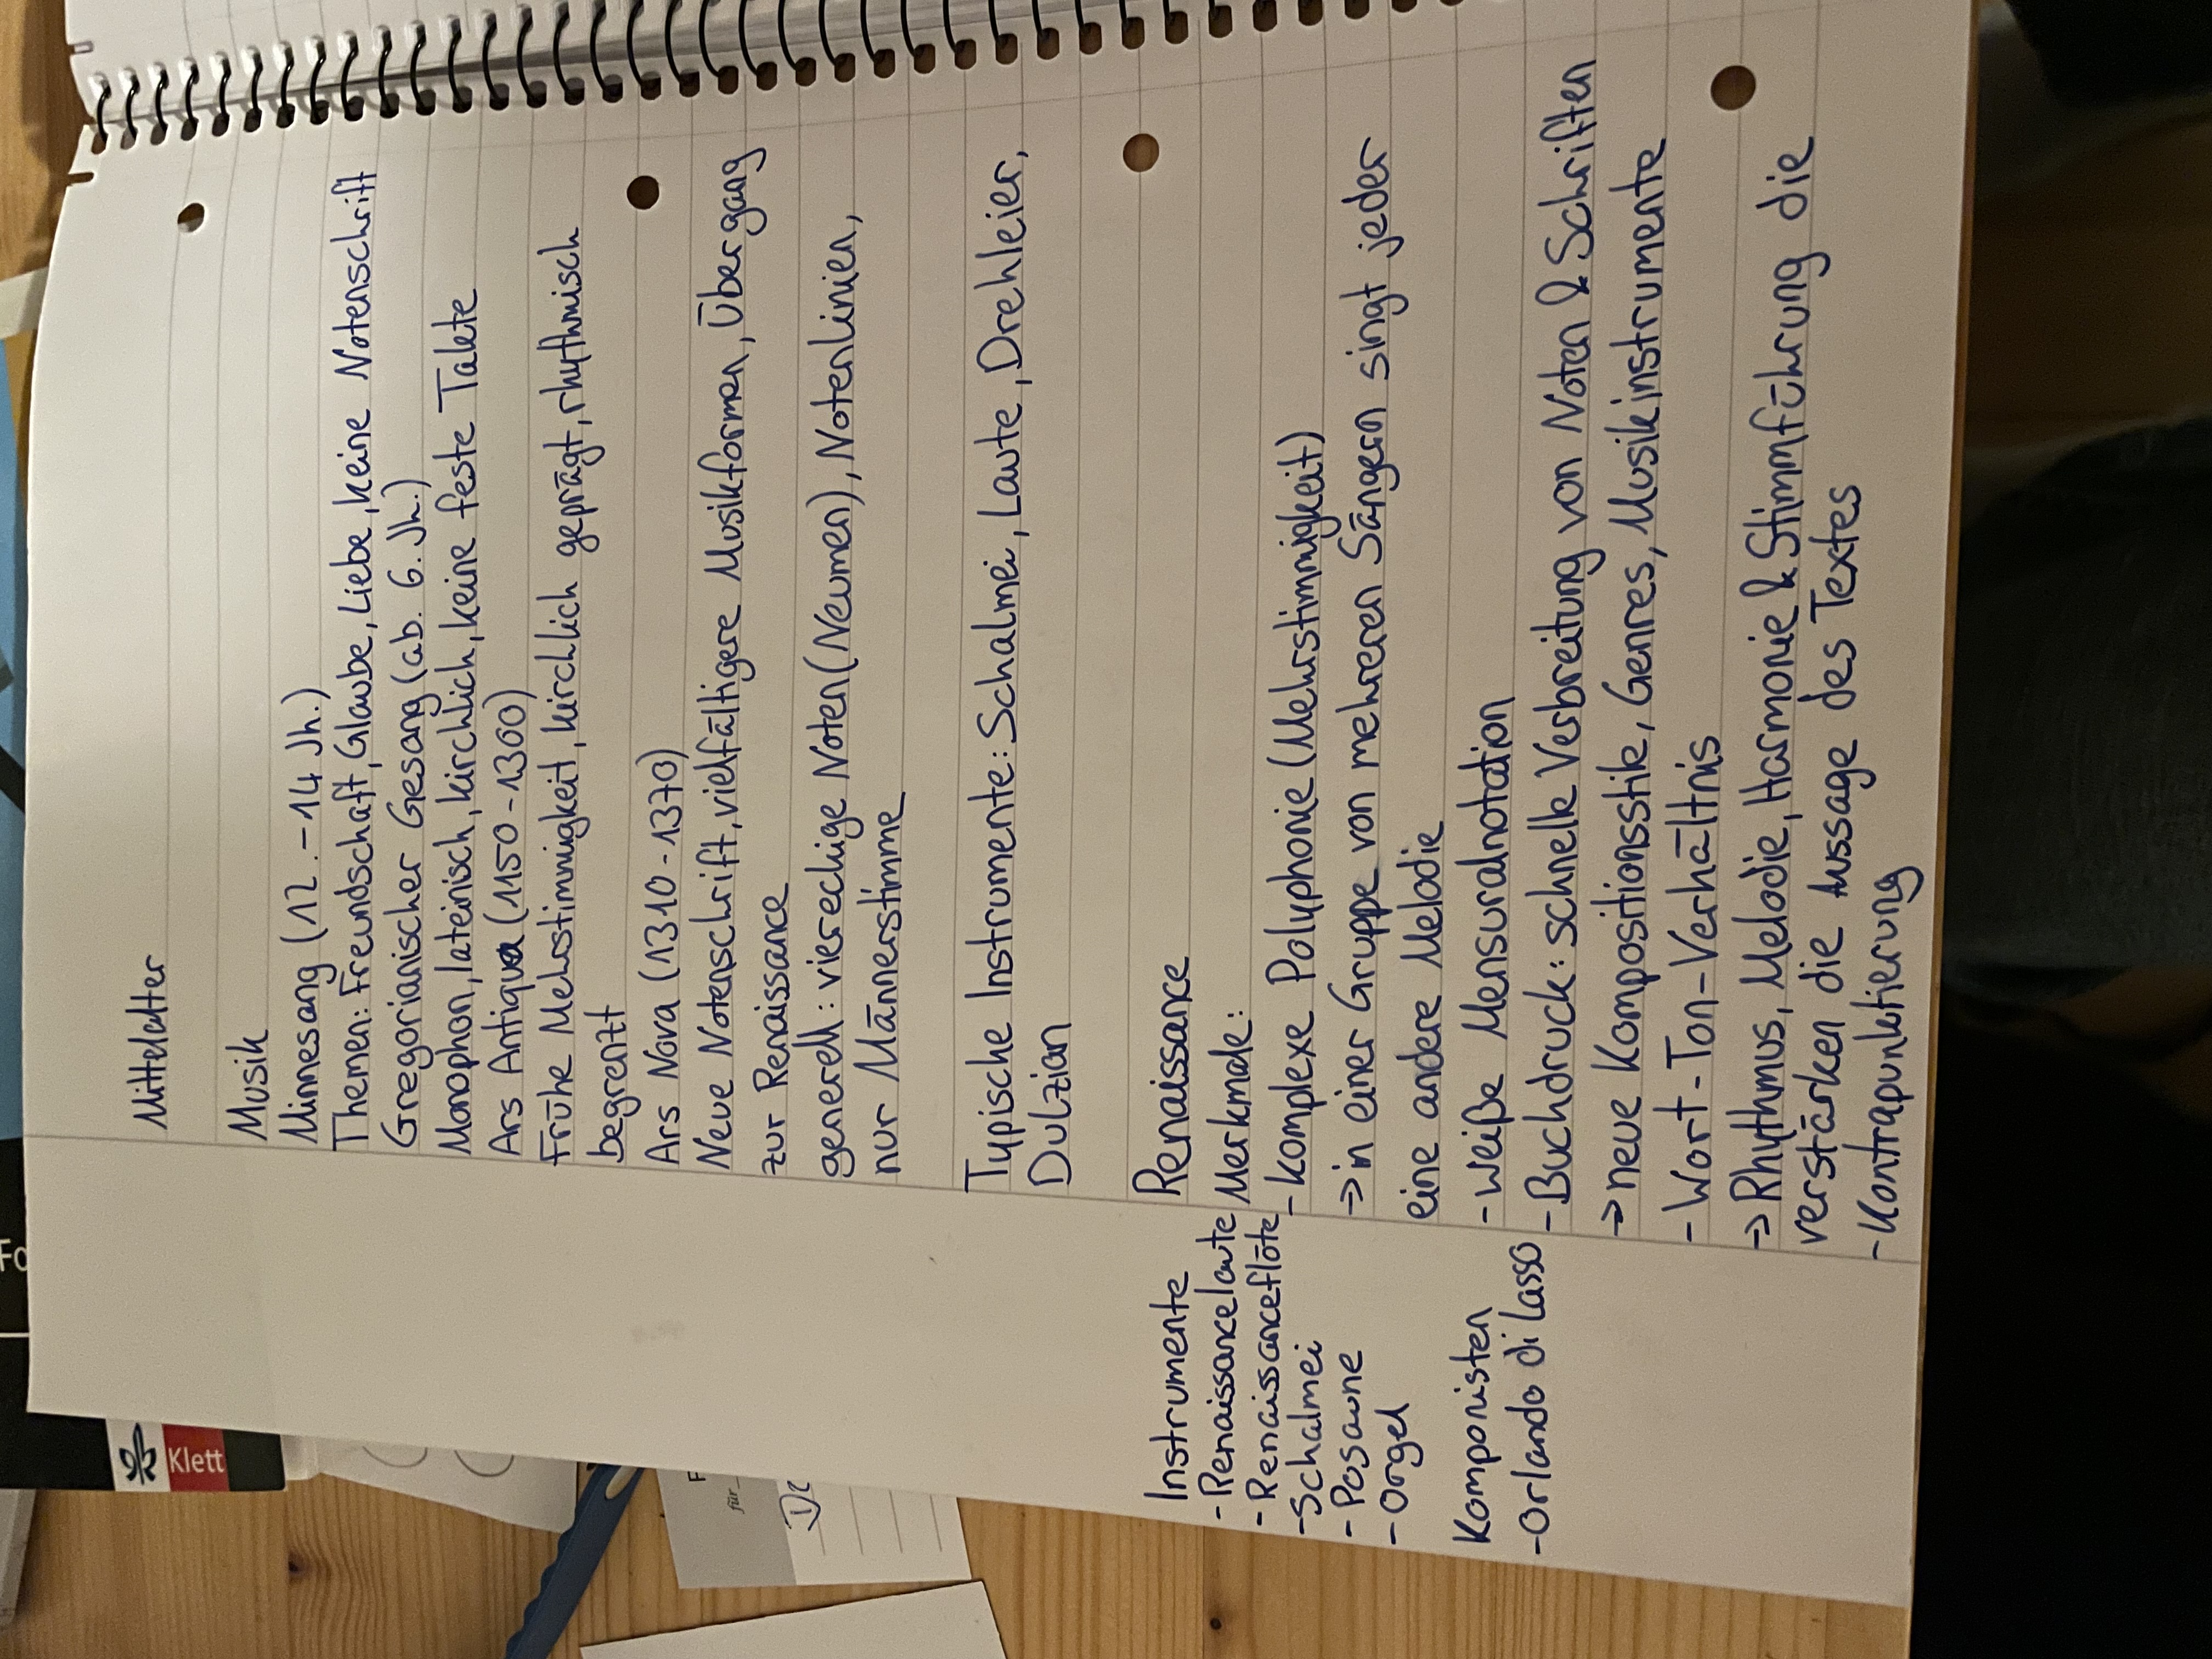 Fo
Klett
F
für
Mittelalter
Musik
Minnesang (12.-14 Jh.)
Themen: Freundschaft, Glaube, Liebe, keine Notenschrift
Gregorianischer Gesang (ab. 6. Jh.)
Monophon, lateinisch, kirchlich, keine feste Takte
Ars Antiqua (1150-1300)
Frühe Mehrstimmigkeit, kirchlich geprägt, rhythmisch
begrenzt
Ars Nova (1310-1370)
Neue Notenschrift, vielfältigere Musikformen, Übergang
zur Renaissance
generell: viereckige Noten (Neumen), Notenlinien,
nur Männerstimme
Typische Instrumente: Schalmei, Laute, Drehleier,
Dulzian
Instrumente
- Renaissancelaute
- Renaissanceflöte
- Schalmei
- Posaune
- Orgel
Komponisten
- Orlando di Lasso
Renaissance
Merkmale:
- komplexe Polyphonie (Mehrstimmigkeit)
→ in einer Gruppe von mehreren Sängern singt jeder
eine andere Melodie
- weiße Mensuralnotation
- Buchdruck: schnelle Verbreitung von Noten & Schriften
→ neue Kompositionsstile, Genres, Musikinstrumente
- Wort-Ton-Verhältnis
→ Rhythmus, Melodie, Harmonie & Stimmführung die
verstärken die Aussage des Textes
- Kontrapunktierung